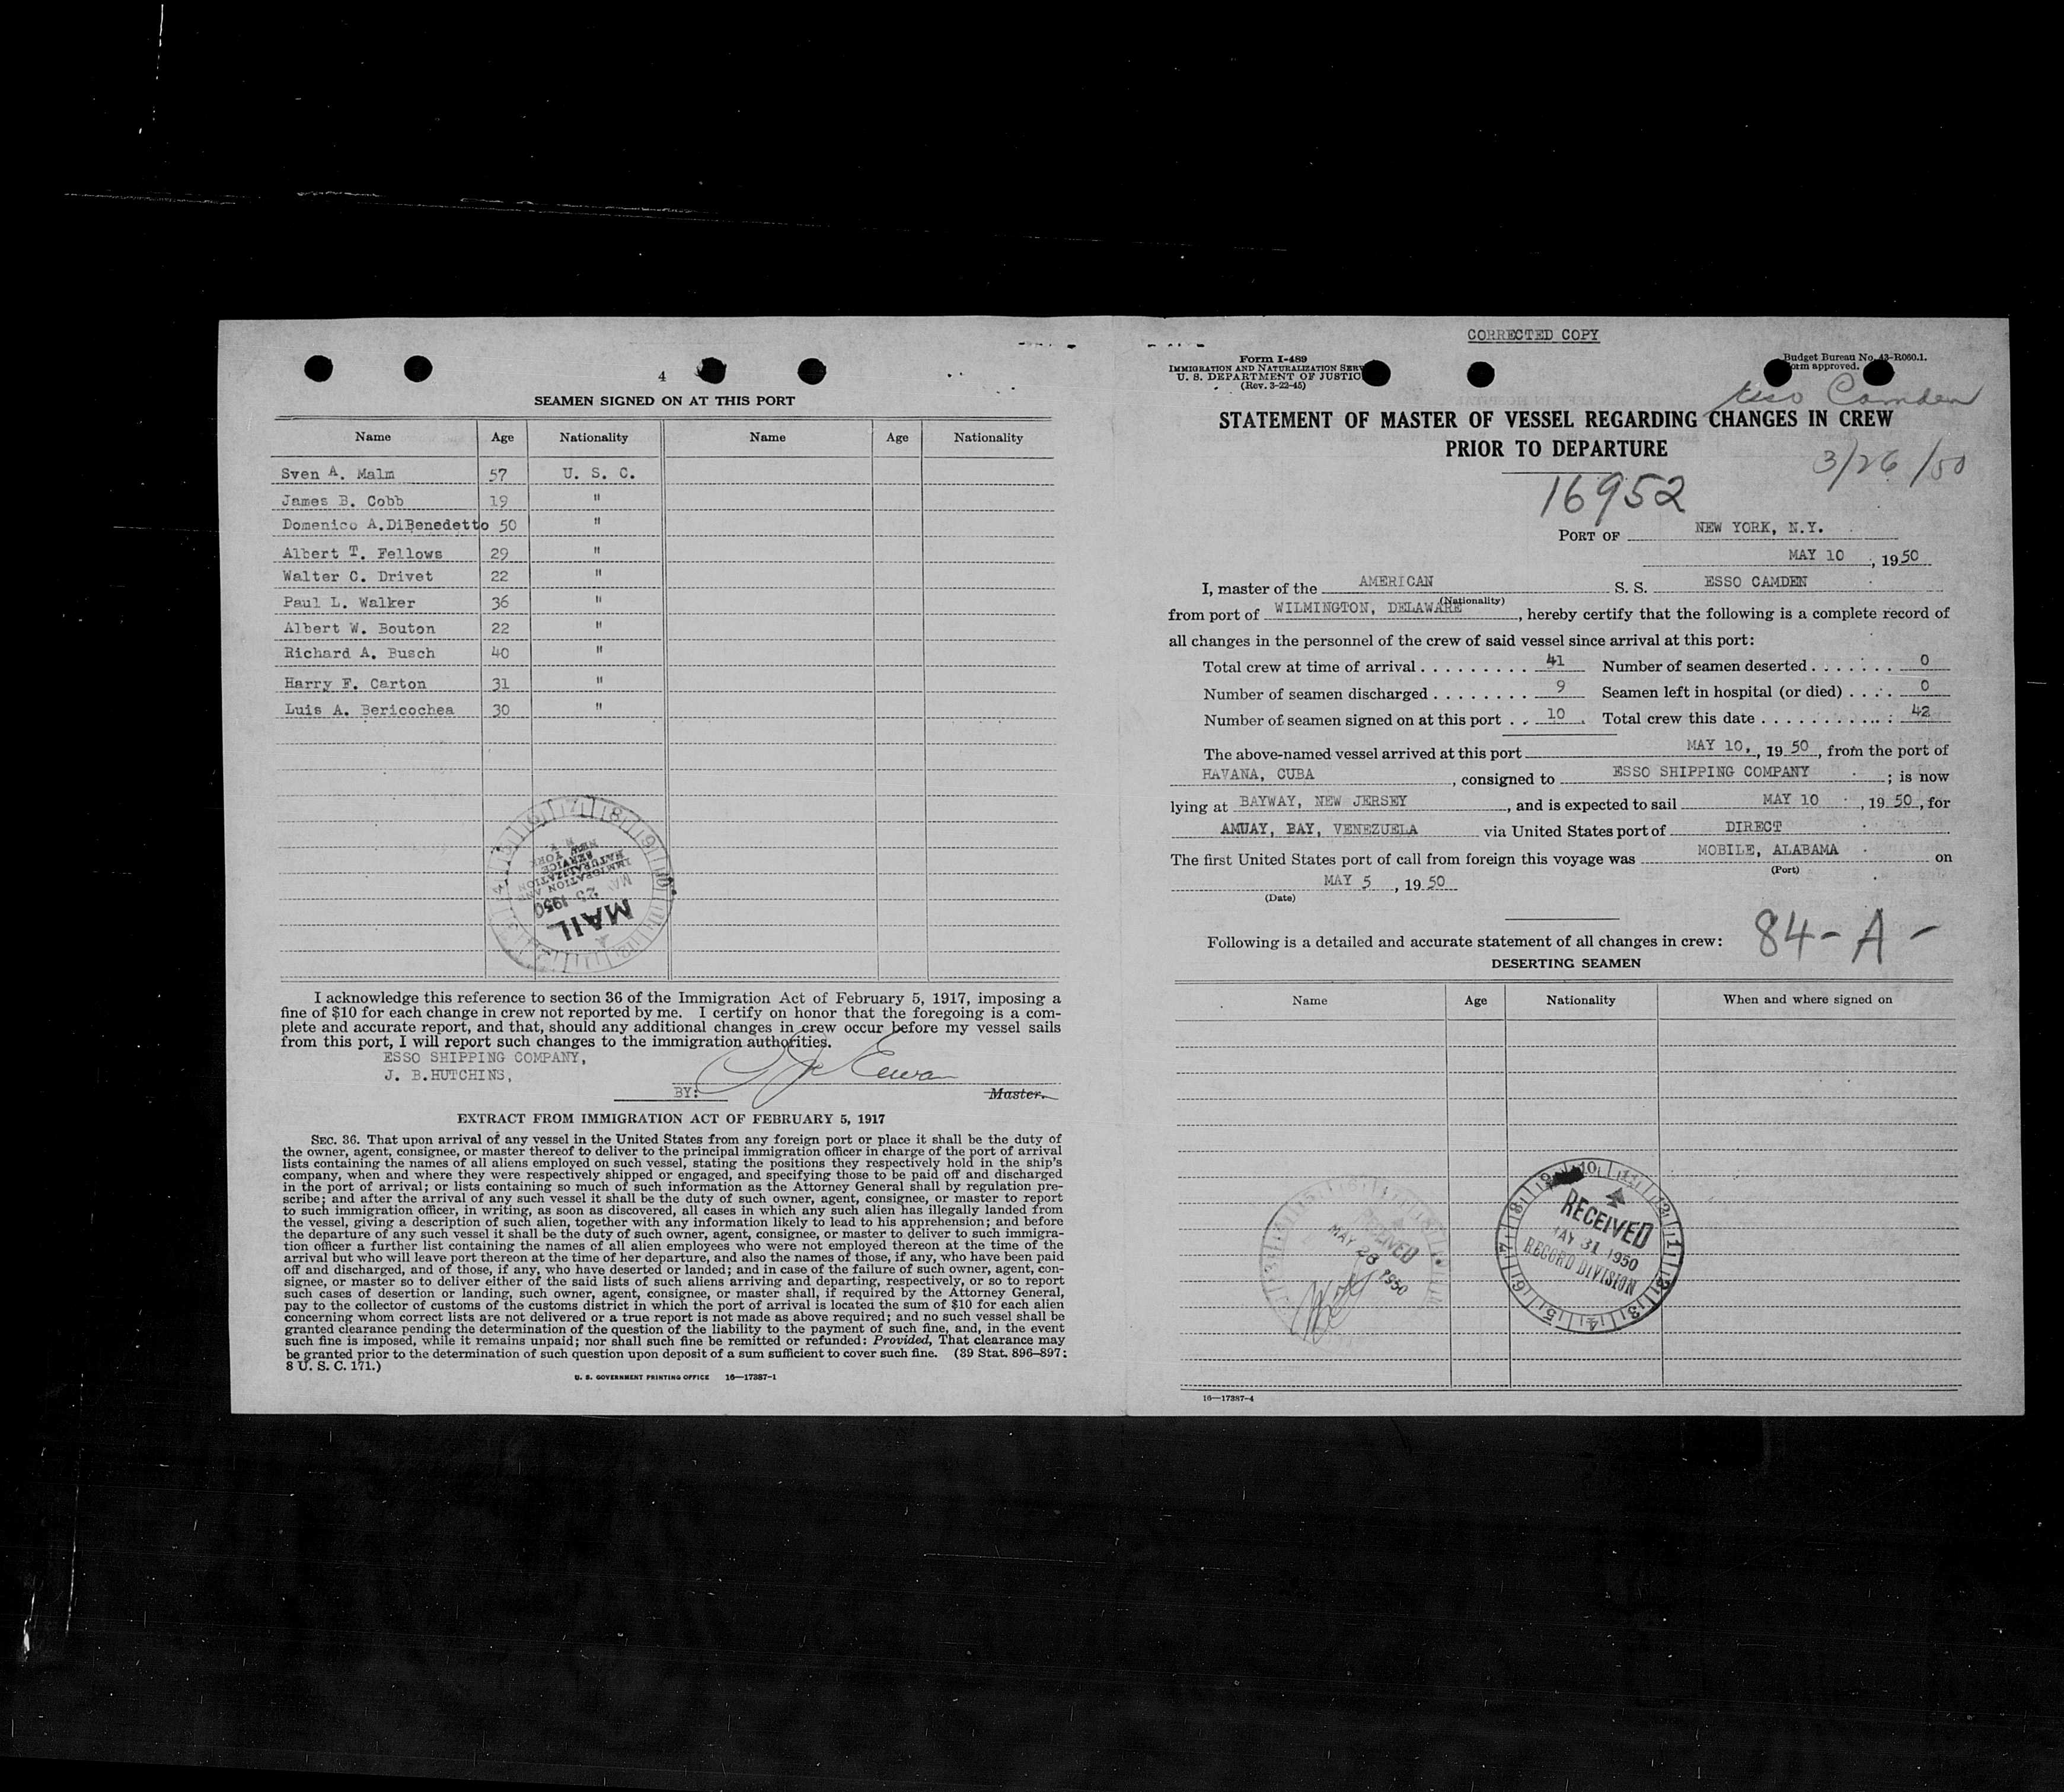 4
SEAMEN SIGNED ON AT THIS PORT
Name Age Nationality Name Age Nationality
Sven A. Malm 57 U. S. C.
James B. Cobb 19 "
Domenico A.DiBenedetto 50 "
Albert T. Fellows 29 "
Walter C. Drivet 22 "
Paul L. Walker 36 "
Albert W. Bouton 22 "
Richard A. Busch 40 "
Harry F. Carton 31 "
Luis A. Bericochea 30 "
IMMIGRATION AND
NATURALIZATION
SERVICE
NEW YORK
N Y
MAY 25 1950
MAIL
I acknowledge this reference to section 36 of the Immigration Act of February 5, 1917, imposing a
fine of $10 for each change in crew not reported by me. I certify on honor that the foregoing is a com-
plete and accurate report, and that, should any additional changes in crew occur before my vessel sails
from this port, I will report such changes to the immigration authorities.
ESSO SHIPPING COMPANY,
J. B.HUTCHINS,
BY:
Master.
EXTRACT FROM IMMIGRATION ACT OF FEBRUARY 5, 1917
SEC. 36. That upon arrival of any vessel in the United States from any foreign port or place it shall be the duty of
the owner, agent, consignee, or master thereof to deliver to the principal immigration officer in charge of the port of arrival
lists containing the names of all aliens employed on such vessel, stating the positions they respectively hold in the ship's
company, when and where they were respectively shipped or engaged, and specifying those to be paid off and discharged
in the port of arrival; or lists containing so much of such information as the Attorney General shall by regulation pre-
scribe; and after the arrival of any such vessel it shall be the duty of such owner, agent, consignee, or master to report
to such immigration officer, in writing, as soon as discovered, all cases in which any such alien has illegally landed from
the vessel, giving a description of such alien, together with any information likely to lead to his apprehension; and before
the departure of any such vessel it shall be the duty of such owner, agent, consignee, or master to deliver to such immigra-
tion officer a further list containing the names of all alien employees who were not employed thereon at the time of the
arrival but who will leave port thereon at the time of her departure, and also the names of those, if any, who have been paid
off and discharged, and of those, if any, who have deserted or landed; and in case of the failure of such owner, agent, con-
signee, or master so to deliver either of the said lists of such aliens arriving and departing, respectively, or so to report
such cases of desertion or landing, such owner, agent, consignee, or master shall, if required by the Attorney General,
pay to the collector of customs of the customs district in which the port of arrival is located the sum of $10 for each alien
concerning whom correct lists are not delivered or a true report is not made as above required; and no such vessel shall be
granted clearance pending the determination of the question of the liability to the payment of such fine, and, in the event
such fine is imposed, while it remains unpaid; nor shall such fine be remitted or refunded: Provided, That clearance may
be granted prior to the determination of such question upon deposit of a sum sufficient to cover such fine. (39 Stat. 896-897;
8 U. S. C. 171.)
U. S. GOVERNMENT PRINTING OFFICE 16—17387-1
CORRECTED COPY
Form I-489
IMMIGRATION AND NATURALIZATION SERV
U. S. DEPARTMENT OF JUSTIC
(Rev. 3-22-45)
Budget Bureau No. 43-R060.1.
orm approved.
Esso Camden
STATEMENT OF MASTER OF VESSEL REGARDING CHANGES IN CREW
PRIOR TO DEPARTURE
3/26/50
16952
PORT OF NEW YORK, N.Y.
MAY 10, 1950
I, master of the AMERICAN S. S. ESSO CAMDEN
(Nationality)
from port of WILMINGTON, DELAWARE, hereby certify that the following is a complete record of
all changes in the personnel of the crew of said vessel since arrival at this port:
Total crew at time of arrival . . . . . . . . . 41 Number of seamen deserted . . . . . . . 0
Number of seamen discharged . . . . . . . . 9 Seamen left in hospital (or died) . . . . 0
Number of seamen signed on at this port . . 10 Total crew this date . . . . . . . . . . . . 42
The above-named vessel arrived at this port MAY 10, , 1950, from the port of
HAVANA, CUBA, consigned to ESSO SHIPPING COMPANY; is now
lying at BAYWAY, NEW JERSEY, and is expected to sail MAY 10, 1950, for
AMUAY, BAY, VENEZUELA via United States port of DIRECT
The first United States port of call from foreign this voyage was MOBILE, ALABAMA on
(Port)
MAY 5, 1950
(Date)
84-A-
Following is a detailed and accurate statement of all changes in crew:
DESERTING SEAMEN
Name Age Nationality When and where signed on
RECEIVED
MAY 26 1950
RECEIVED
MAY 31 1950
RECORD DIVISION
16—17387-4